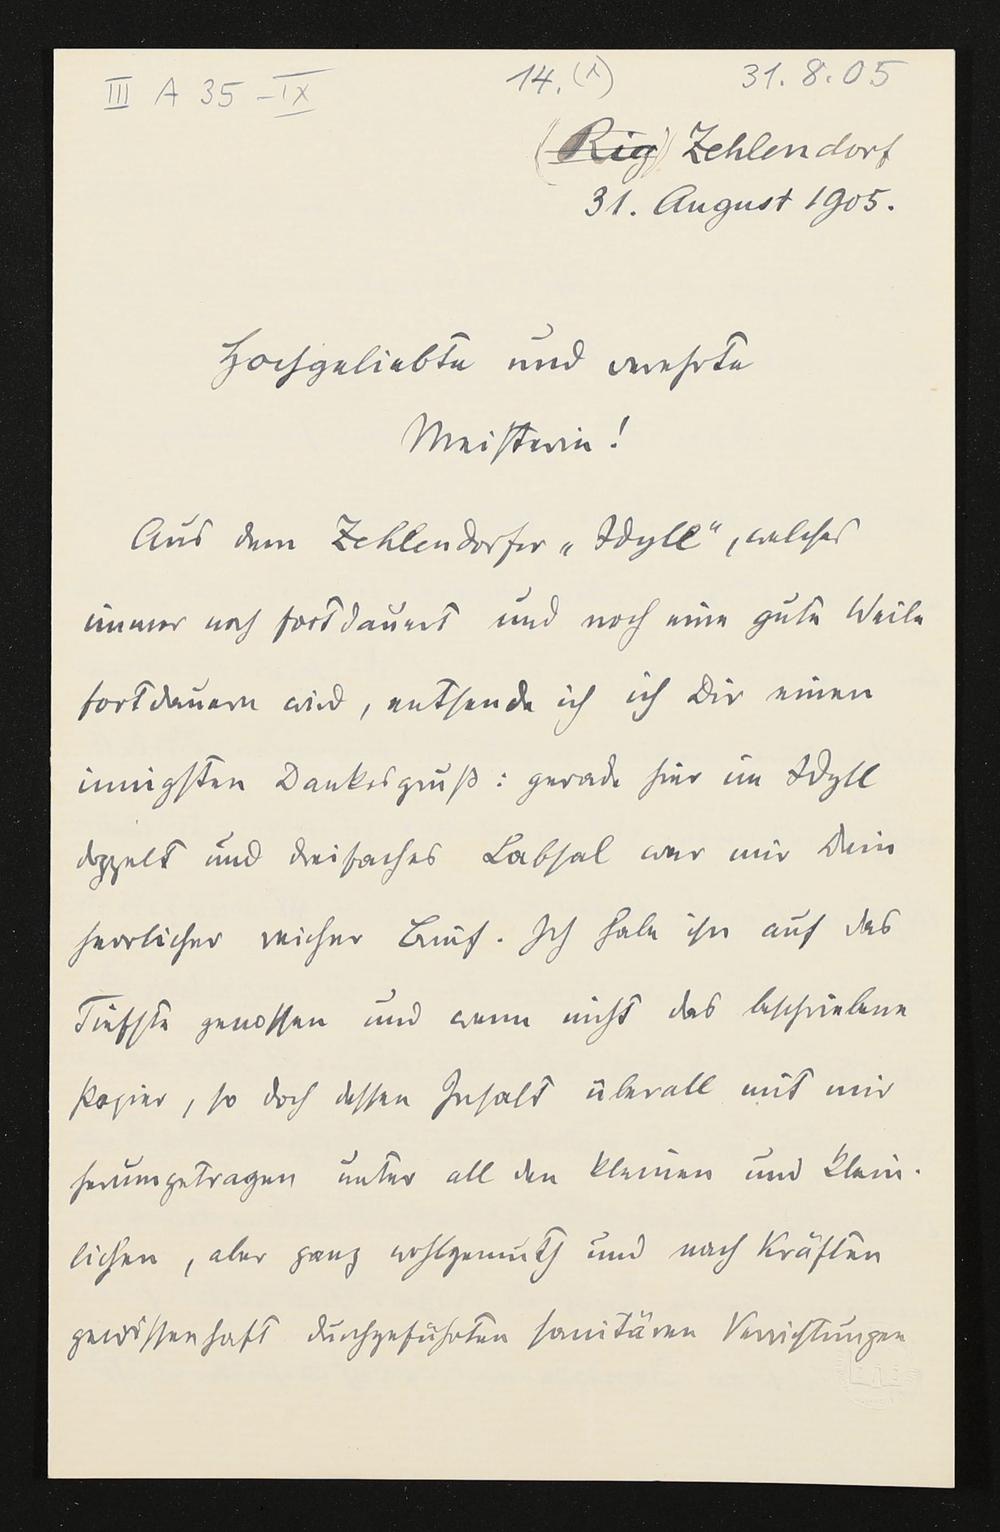 III A 35 - IX
14. (1)
31. 8. 05
(Rig) Zehlendorf
31. August 1905.
Hochgeliebte und verehrte
Meisterin!
Aus dem Zehlendorfer „Idyll“, welches
immer noch fortdauert und noch eine gute Weile
fortdauern wird, entsende ich ich Dir einen
innigsten Dankesgruß: gerade hier im Idyll
doppelt und dreifaches Labsal war mir Dein
herrlicher reicher Brief. Ich habe ihn auf das
Tiefste genossen und wenn nicht das beschriebene
Papier, so doch dessen Inhalt überall mit mir
herumgetragen unter all den kleinen und klein-
lichen, aber ganz wohlgemuth und nach Kräften
gewissenhaft durchgeführten sanitären Verrichtungen